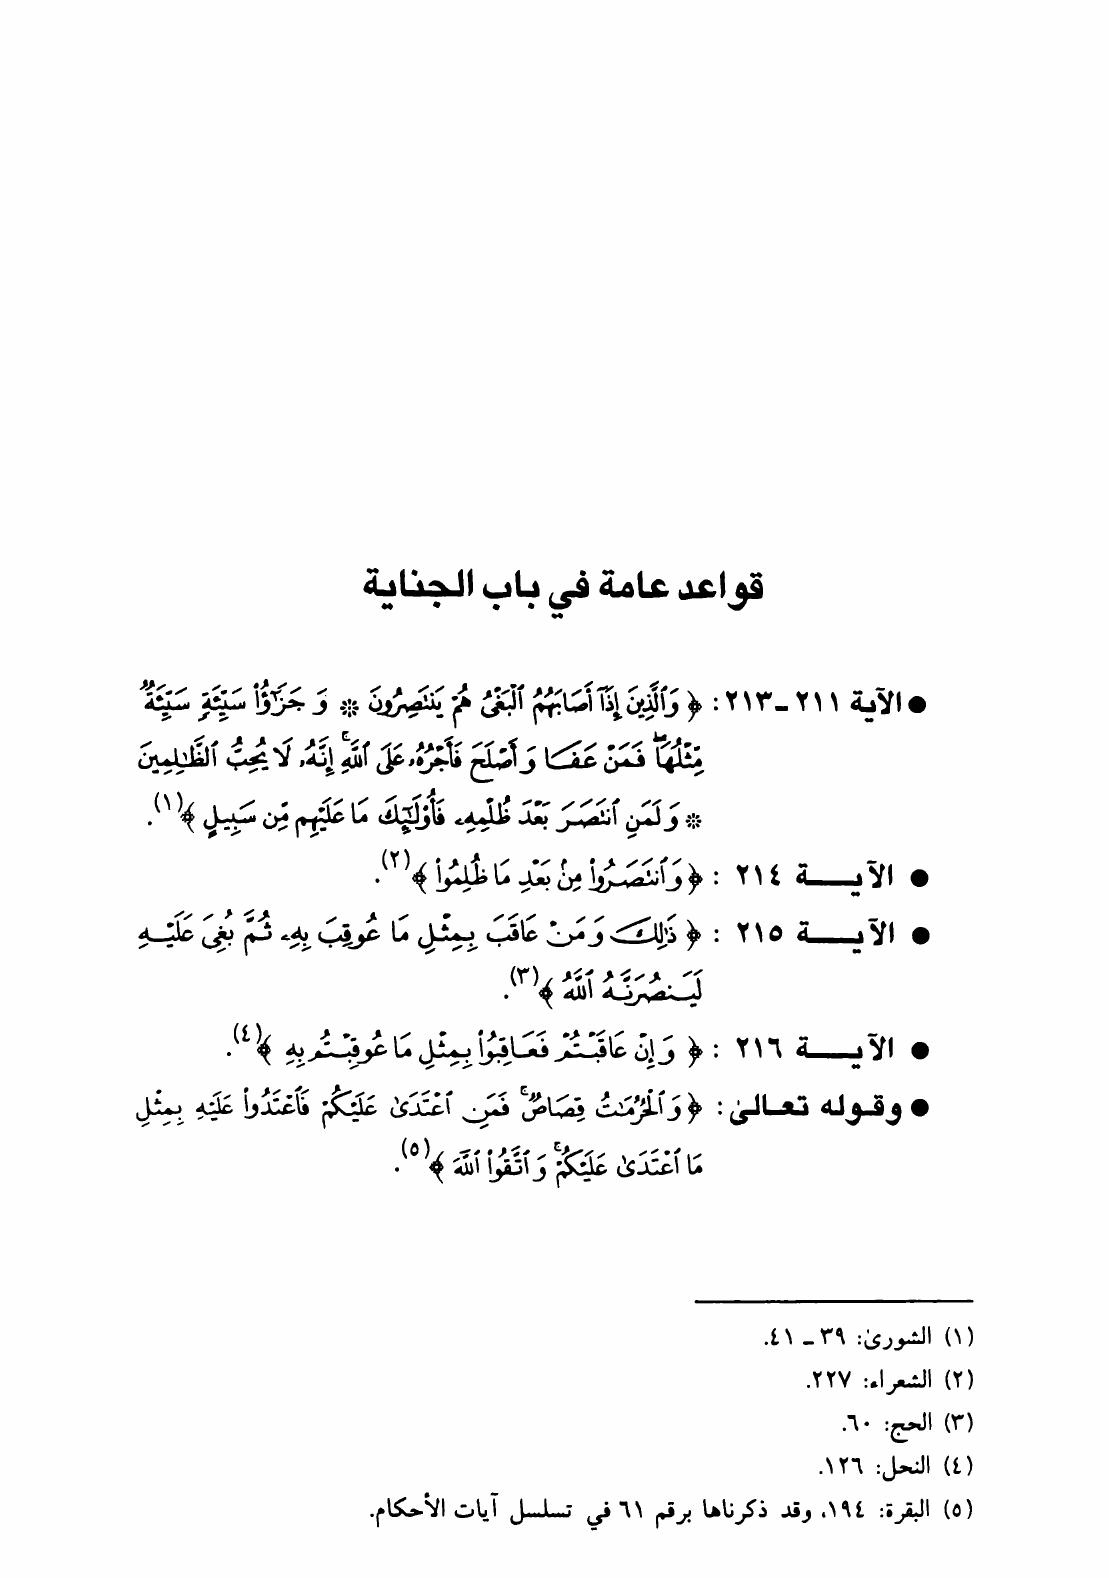 قواعد عامة في باب الجناية
● الآية ٢١١ـ٢١٣: ﴿ وَٱلَّذِينَ إِذَآ أَصَابَهُمُ ٱلْبَغْىُ هُمْ يَنتَصِرُونَ * وَ جَزَٰٓؤُا۟ سَيِّئَةٍ سَيِّئَةٌ
مِّثْلُهَا ۖ فَمَنْ عَفَا وَ أَصْلَحَ فَأَجْرُهُۥ عَلَى ٱللَّهِ ۚ إِنَّهُۥ لَا يُحِبُّ ٱلظَّٰلِمِينَ
* وَ لَمَنِ ٱنتَصَرَ بَعْدَ ظُلْمِهِۦ فَأُو۟لَٰٓئِكَ مَا عَلَيْهِم مِّن سَبِيلٍ ﴾(١).
● الآيـــة ٢١٤ : ﴿ وَٱنتَصَرُوا۟ مِنۢ بَعْدِ مَا ظُلِمُوا۟ ﴾(٢).
● الآيـــة ٢١٥ : ﴿ ذَٰلِكَ وَ مَنْ عَاقَبَ بِمِثْلِ مَا عُوقِبَ بِهِۦ ثُمَّ بُغِىَ عَلَيْـهِ
لَيَـنصُرَنَّـهُ ٱللَّهُ ﴾(٣).
● الآيـــة ٢١٦ : ﴿ وَ إِنْ عَاقَبْتُمْ فَعَـاقِبُوا۟ بِـمِثْلِ مَا عُوقِبْتُم بِهِ ﴾(٤).
● وقـولـه تعـالىٰ: ﴿ وَ ٱلْحُرُمَٰتُ قِصَاصٌ ۚ فَمَنِ ٱعْتَدَىٰ عَلَيْكُمْ فَٱعْتَدُوا۟ عَلَيْهِ بِمِثْلِ
مَا ٱعْتَدَىٰ عَلَيْكُمْ ۚ وَ ٱتَّقُوا۟ ٱللَّهَ ﴾(٥).
(١) الشورىٰ: ٣٩ ـ ٤١.
(٢) الشعراء: ٢٢٧.
(٣) الحج: ٦٠.
(٤) النحل: ١٢٦.
(٥) البقرة: ١٩٤، وقد ذكرناها برقم ٦١ في تسلسل آيات الأحكام.